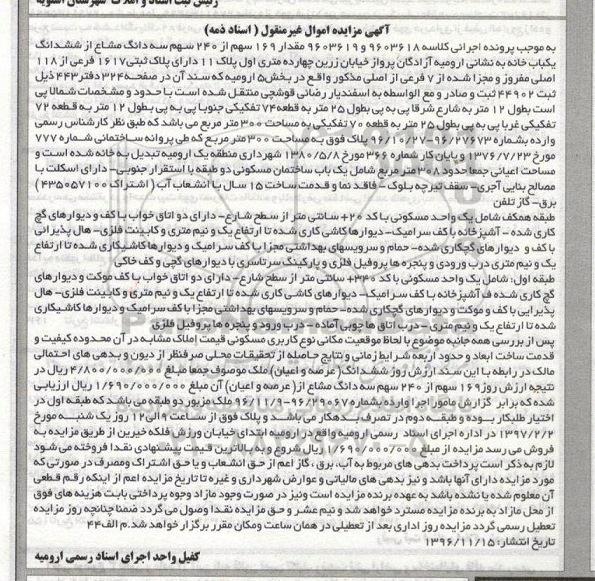 رئیس ثبت اسناد و املاک شهرستان اشنویه
آگهی مزایده اموال غیرمنقول ( اسناد ذمه)
به موجب پرونده اجرائی کلاسه ۹۶۰۳۶۱۸ و ۹۶۰۳۶۱۹ مقدار ۱۶۹ سهم از ۲۴۰ سهم سه دانگ مشاع از ششدانگ
یکباب خانه به نشانی ارومیه آزادگان پرواز خیابان زرین چهارده متری اول پلاک ۱۱ دارای پلاک ثبتی ۱۶۱۷ فرعی از ۱۱۸
اصلی مفروز و مجزا شده از ۷ فرعی از اصلی مذکور واقع در بخش ۵ ارومیه که سند آن در صفحه ۳۲۴ دفتر ۴۴۳ ذیل
ثبت ۴۴۹۰۲ ثبت و صادر و مع الواسطه به اسفندیار رضائی قوشچی منتقل شده است با حدود و مشخصات شمالا پی
است بطول ۱۲ متر به شارع شرقا پی به پی بطول ۲۵ متر به قطعه ۷۴ تفکیکی جنوبا پی به پی بطول ۱۲ متر به قطعه ۷۲
تفکیکی غربا پی به پی بطول ۲۵ متر به قطعه ۷۰ تفکیکی به مساحت ۳۰۰ متر مربع می باشد که طبق نظر کارشناس رسمی
وارده بشماره ۹۶/۲۷۶۷۳-۹۶/۱۰/۲۷ پلاک فوق به مساحت ۳۰۰ متر مربع که طی پروانه ساختمانی شماره ۷۷۷
مورخ ۱۳۷۶/۷/۲۳ و پایان کار شماره ۳۶۶ مورخ ۱۳۸۰/۵/۸ شهرداری منطقه یک ارومیه تبدیل به خانه شده است و
مساحت اعیانی جمعا حدود ۳۰۸ متر مربع شامل یک باب ساختمان مسکونی دو طبقه با استقرار جنوبی- دارای اسکلت با
مصالح بنایی آجری- سقف تیرچه بلوک- فاقد نما و قدمت ساخت ۱۵ سال با انشعاب آب ( اشتراک ۴۳۵۰۵۷۱۰۰)
برق- گاز تلفن
طبقه همکف شامل یک واحد مسکونی با کد ۲۰+ سانتی متر از سطح شارع- دارای دو اتاق خواب با کف و دیوارهای گچ
کاری شده - آشپزخانه با کف سرامیک- دیوارها کاشی کاری شده تا ارتفاع یک و نیم متری و کابینت فلزی- هال پذیرائی
با کف و دیوارهای گچکاری شده- حمام و سرویسهای بهداشتی مجزا با کف سرامیک و دیوارها کاشیکاری شده تا ارتفاع
یک و نیم متری درب ورودی و پنجره ها پروفیل فلزی و پارکینگ سرتاسری با دیوارهای گچی و کف خاکی
طبقه اول: شامل یک واحد مسکونی با کد ۳۴۰+ سانتی متر از سطح شارع- دارای دو اتاق خواب با کف موکت و دیوارهای
گچ کاری شده- آشپزخانه با کف سرامیک- دیوارهای کاشی کاری شده تا ارتفاع یک و نیم متری و کابینت فلزی- هال
پذیرایی با کف موکت و دیوارهای گچکاری شده- حمام و سرویسهای بهداشتی مجزا با کف سرامیک و دیوارها کاشیکاری
شده تا ارتفاع یک و نیم متری - درب اتاق ها چوبی آماده - درب ورود و پنجره ها پروفیل فلزی
پس از بررسی همه جانبه موضوع با لحاظ موقعیت مکانی نوع کاربری مسکونی قیمت املاک مشابه در آن محدوده کیفیت و
قدمت ساخت ابعاد و حدود اربعه شرایط زمانی و نتایج حاصله از تحقیقات محلی صرفنظر از دیون و بدهی های احتمالی
مالک در رابطه با این سند ارزش روز ششدانگ( عرصه و اعیان) ملک موصوف جمعا مبلغ ۴/۸۰۰/۰۰۰/۰۰۰ ریال در
نتیجه ارزش روز ۱۶۹ سهم از ۲۴۰ سهم سه دانگ مشاع از( عرصه و اعیان) آن مبلغ ۱/۶۹۰/۰۰۰/۰۰۰ ریال ارزیابی
شده که برابر گزارش مامور اجرا وارده بشماره ۹۶/۲۹۰۶۷-۹۶/۱۱/۹ ملک مزبور دو طبقه می باشد که طبقه اول در
اختیار طلبکار بوده و طبقه دوم در تصرف بدهکار می باشد و پلاک فوق از ساعت ۹ الی ۱۲ روز یک شنبه مورخ
۱۳۹۷/۲/۲ در اداره اجرای اسناد رسمی ارومیه واقع در ارومیه ابتدای خیابان ورزش فلکه خیرین از طریق مزایده به
فروش می رسد مزایده از مبلغ ۱/۶۹۰/۰۰۰/۰۰۰ ریال شروع و به بالاترین قیمت پیشنهادی نقدا فروخته می شود
لازم به ذکر است پرداخت بدهی های مربوط به آب، برق، گاز اعم از حق انشعاب و یا حق اشتراک ومصرف در صورتی که
مورد مزایده دارای آنها باشد و نیز بدهی های مالیاتی و عوارض شهرداری و غیره تا تاریخ مزایده اعم از اینکه رقم قطعی
آن معلوم شده یا نشده باشد به عهده برنده مزایده است ونیز در صورت وجود مازاد وجوه پرداختی بابت هزینه های فوق
از محل مازاد به برنده مزایده مسترد خواهد شد و نیم عشر و حق مزایده نقدا وصول می گردد ضمنا چنانچه روز مزایده
تعطیل رسمی گردد مزایده روز اداری بعد از تعطیلی در همان ساعت ومکان مقرر برگزار خواهد شد.م الف ۴۴
تاریخ انتشار: ۱۳۹۶/۱۱/۱۵
کفیل واحد اجرای اسناد رسمی ارومیه